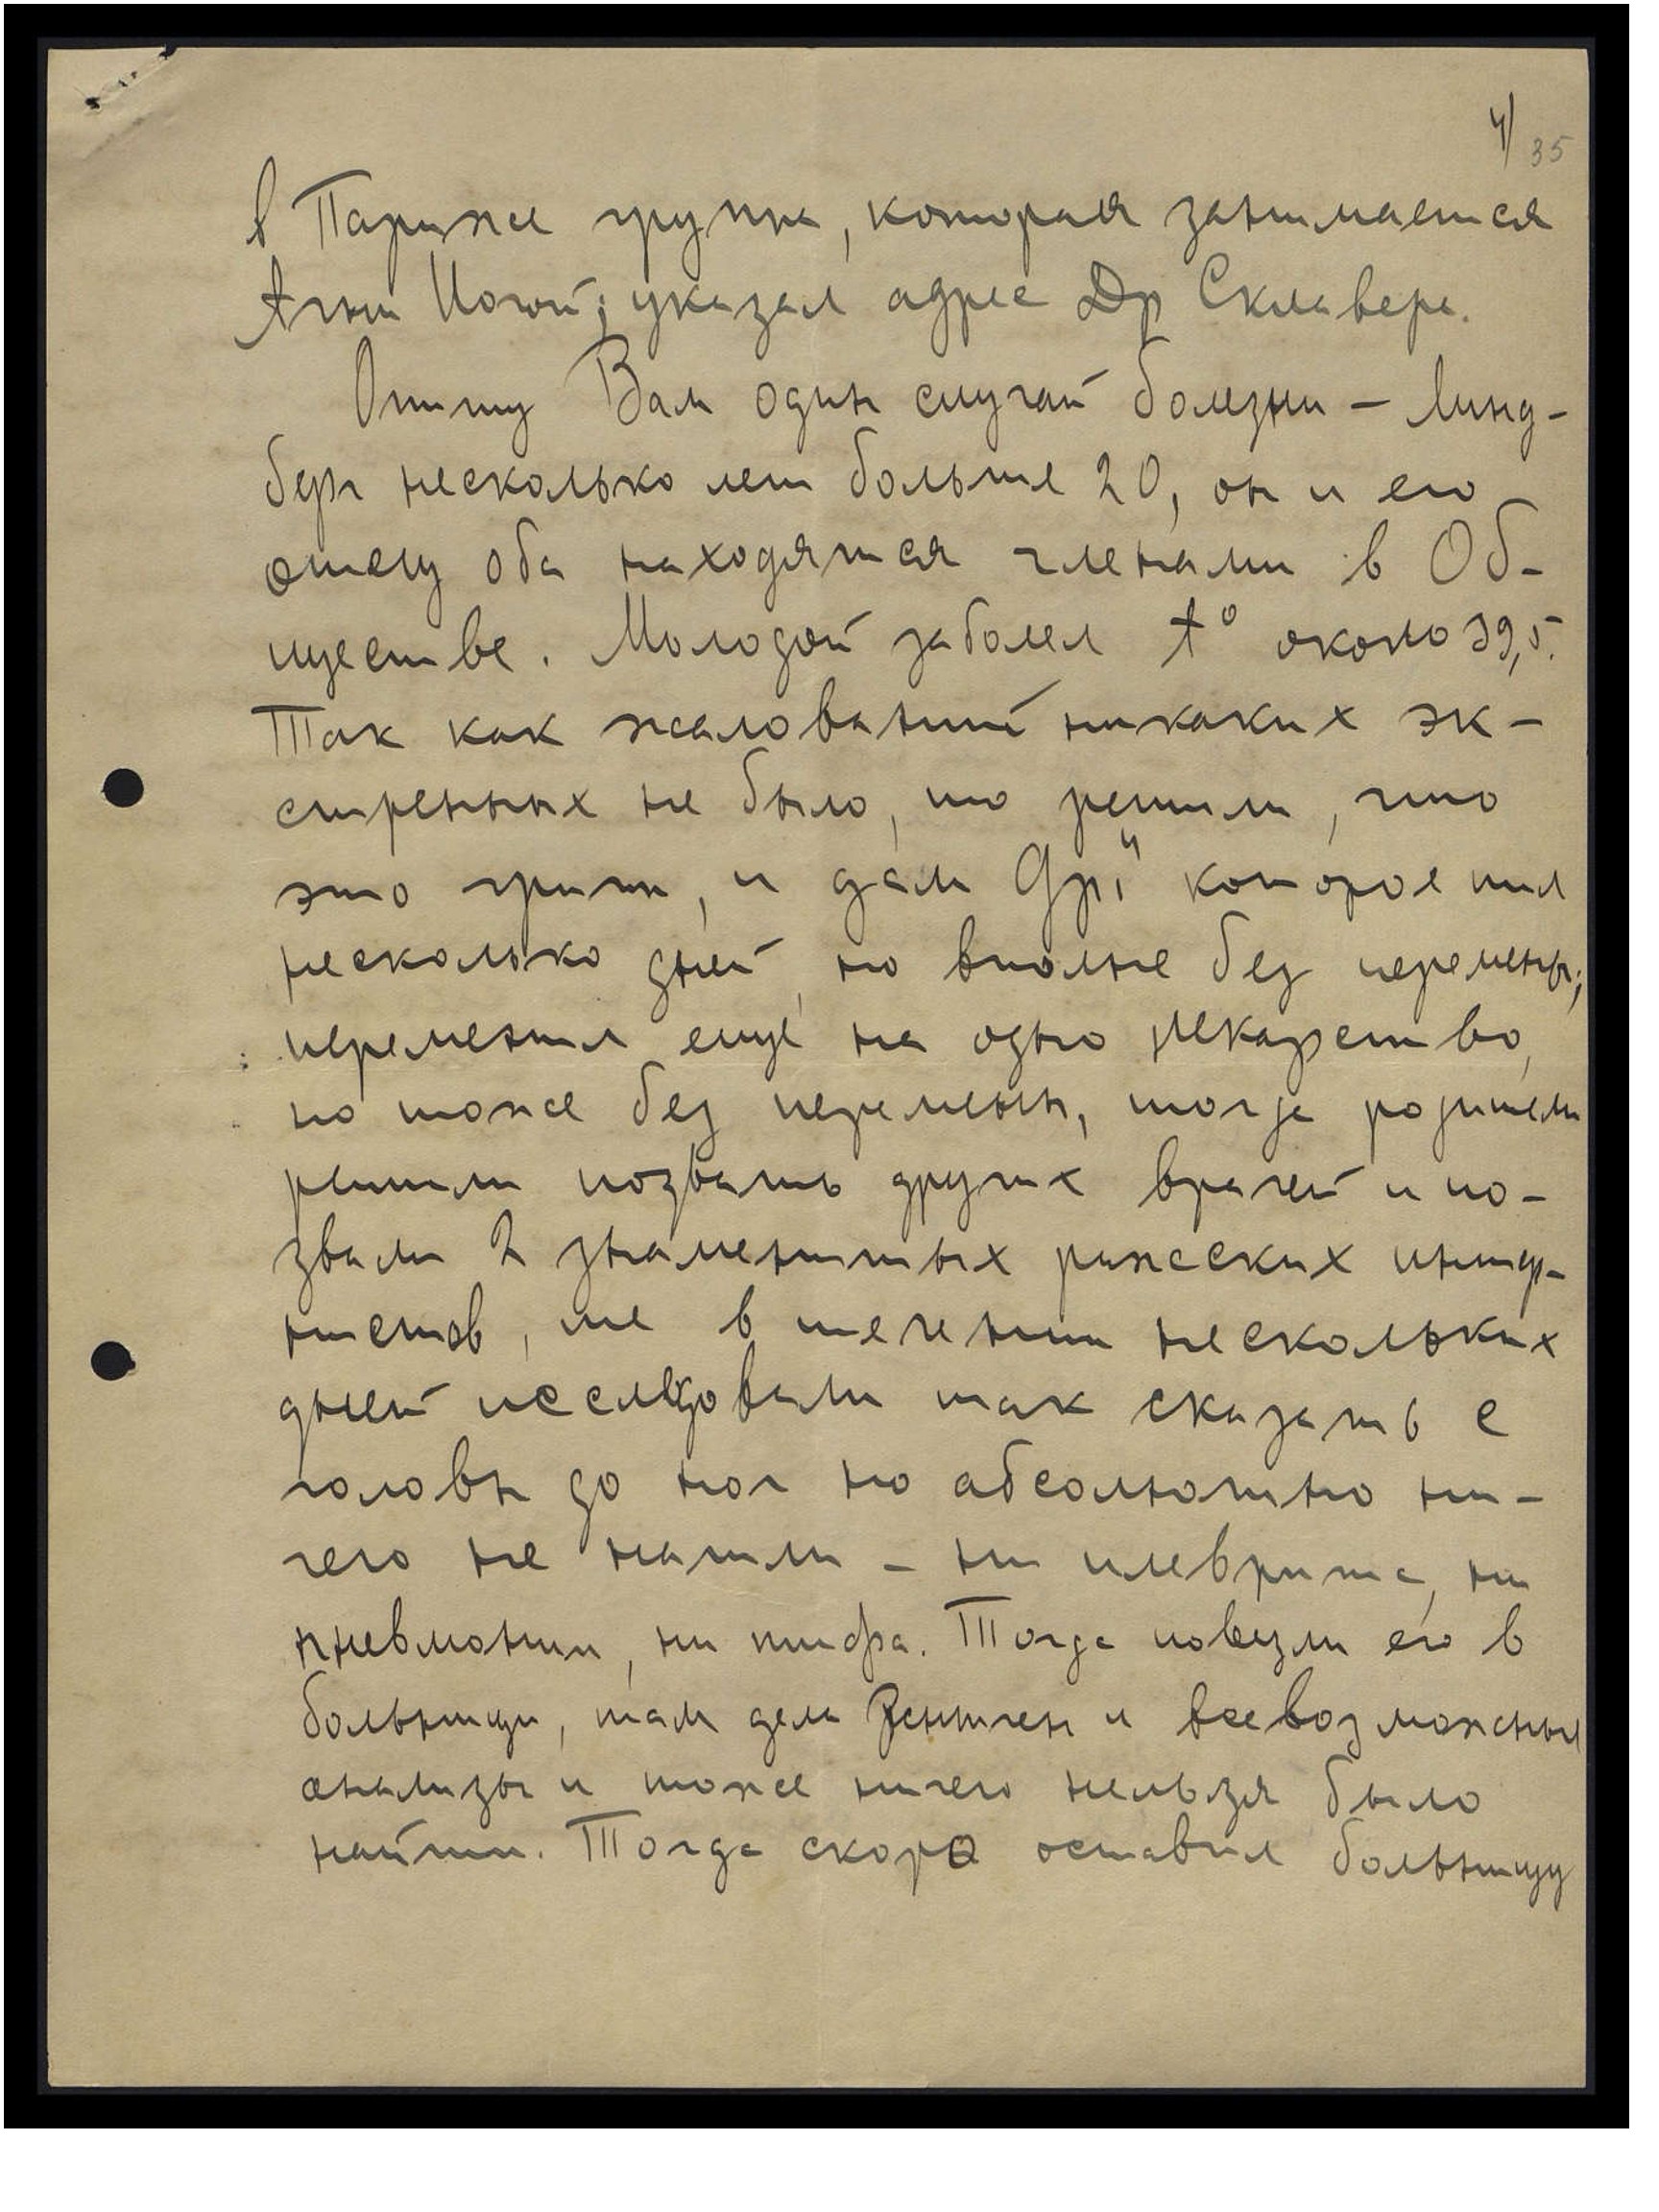 4) 35
в Париже группа, которая занимается
Агни Йогой; указал адрес Др Склавера.
Опишу Вам один случай болезни – Линд-
берг несколько лет больше 20, он и его
отец оба находятся членами в Об-
ществе. Молодой заболел t° около 39,5.
Так как жалований никаких эк-
стренных не было, то решили, что
это грипп, и дали которое пил
несколько дней, но вполне без перемены;
переменил ещё на одно лекарство,
но тоже без перемены, тогда родители
решили позвать других врачей и по-
звали 2 знаменитых рижских интер-
нистов, те в течении нескольких
дней исследовали так сказать с
головы до ног но абсолютно ни-
чего не нашли – ни плеврита, ни
пневмонии, ни тифа. Тогда повезли его в
больницу, там дела Рентген и всевозможные
анализы и тоже ничего нельзя было
найти. Тогда скоро оставил больницу